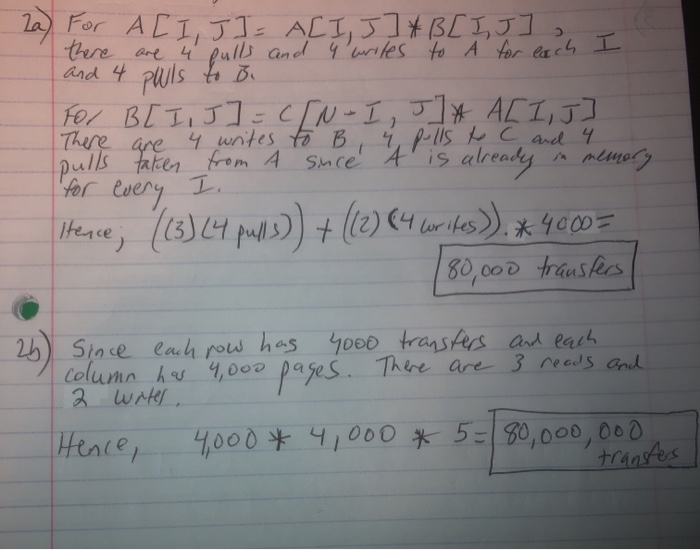 2a) For A[I,J] = A[I,J] * B[I,J],
there are 4 pulls and 4 writes to A for each I
and 4 pulls to B.
For B[I,J] = C[N-I, J] * A[I,J]
There are 4 writes to B, 4 pulls to C and 4
pulls taken from A since A is already in memory
for every I.
Hence, ((3)(4 pulls)) + ((2)(4 writes)) * 4000 =
80,000 transfers
2b) Since each row has 4000 transfers and each
column has 4,000 pages. There are 3 reads and
2 writes.
Hence, 4,000 * 4,000 * 5 = 80,000,000
transfers